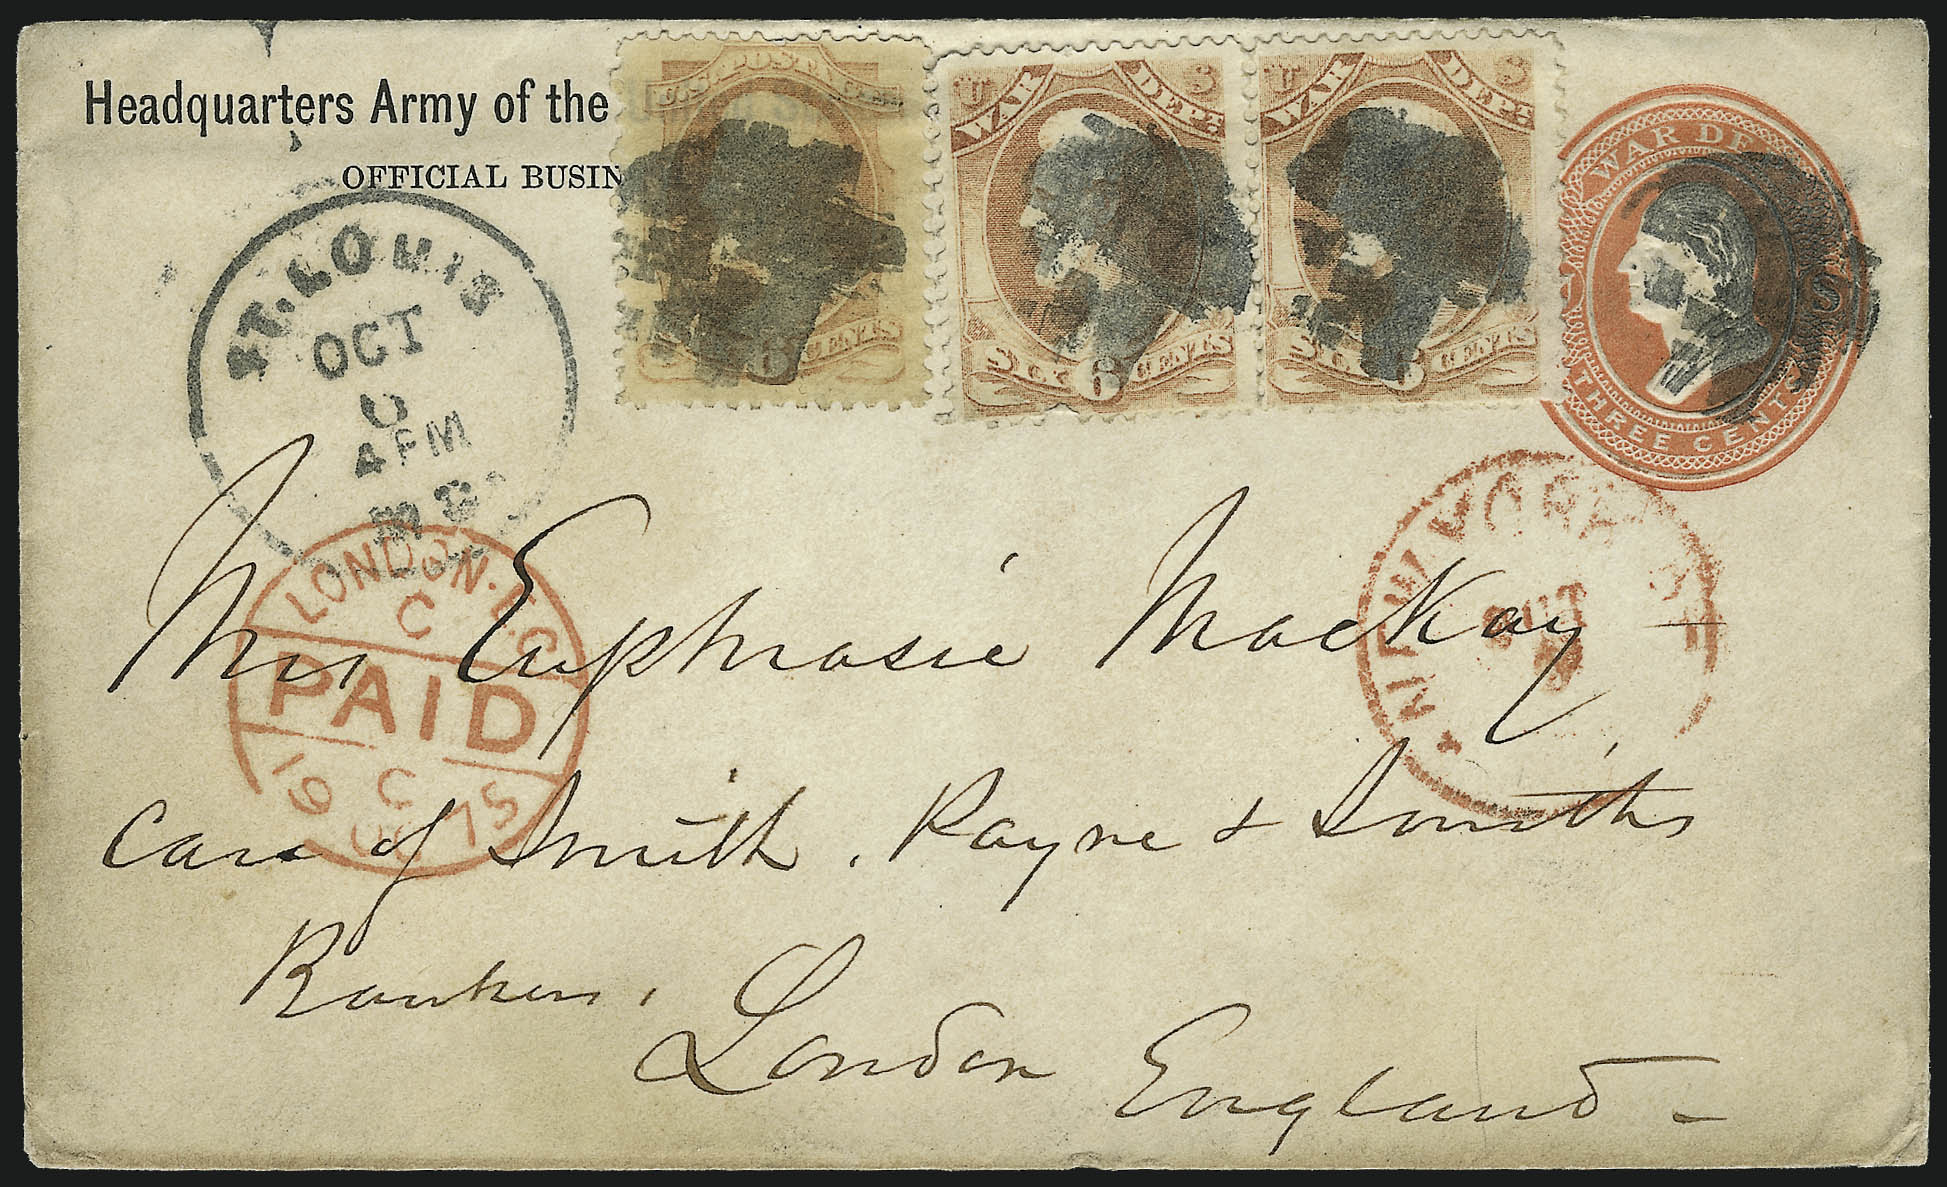 Headquarters Army of the
OFFICIAL BUSIN
U.S. POSTAGE
6 CENTS
U S
WAR DEPT.
SIX 6 CENTS
U S
WAR DEPT.
SIX 6 CENTS
WAR DE
THREE CENTS
ST. LOUIS
OCT
4 PM
NEW YORK
OCT
LONDON. E.C
C
PAID
19 C 75
OC
Miss Euphrasie MacKay
Care of Smith, Payne & Smiths
Bankers,
London
England